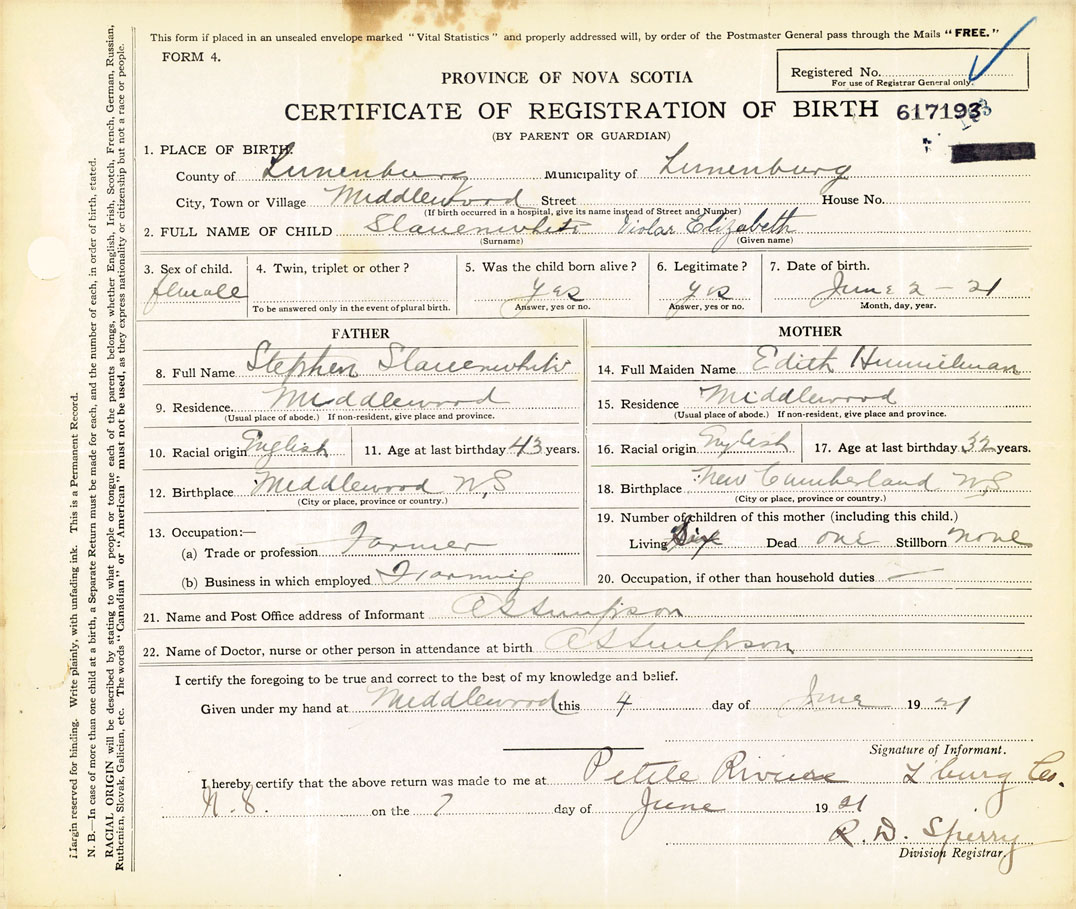 This form if placed in an unsealed envelope marked "Vital Statistics" and properly addressed will, by order of the Postmaster General pass through the Mails "FREE."
FORM 4.
Registered No.
For use of Registrar General only.
PROVINCE OF NOVA SCOTIA
CERTIFICATE OF REGISTRATION OF BIRTH 617193
(BY PARENT OR GUARDIAN)
1. PLACE OF BIRTH.
County of Lunenburg Municipality of Lunenburg
City, Town or Village Middlewood Street House No.
(If birth occurred in a hospital, give its name instead of Street and Number)
2. FULL NAME OF CHILD Slauenwhite Violar Elizabeth
(Surname) (Given name)
3. Sex of child. 4. Twin, triplet or other? 5. Was the child born alive? 6. Legitimate? 7. Date of birth.
female yes yes June 2 - 21
To be answered only in the event of plural birth. Answer, yes or no. Answer, yes or no. Month, day, year.
FATHER MOTHER
8. Full Name Stephen Slauenwhite 14. Full Maiden Name Edith Hummelman
9. Residence. Middlewood 15. Residence Middlewood
(Usual place of abode.) If non-resident, give place and province. (Usual place of abode.) If non-resident, give place and province.
10. Racial origin English 11. Age at last birthday 43 years. 16. Racial origin English 17. Age at last birthday 32 years.
12. Birthplace Middlewood N,S 18. Birthplace New Cumberland N,S
(City or place, province or country.) (City or place, province or country.)
13. Occupation:— 19. Number of children of this mother (including this child.)
(a) Trade or profession Farmer Living Six Dead one Stillborn none
(b) Business in which employed Farming 20. Occupation, if other than household duties —
21. Name and Post Office address of Informant
22. Name of Doctor, nurse or other person in attendance at birth
I certify the foregoing to be true and correct to the best of my knowledge and belief.
Given under my hand at Middlewood this 4 day of June 19 21
Signature of Informant.
I hereby certify that the above return was made to me at Petite Riviere L'burg Co.
N.S. on the 7 day of June 19 21
R. D. Sperry
Division Registrar.
Margin reserved for binding. Write plainly, with unfading ink. This is a Permanent Record.
N. B.—In case of more than one child at a birth, a Separate Return must be made for each, and the number of each, in order of birth, stated.
RACIAL ORIGIN will be described by stating to what people or tongue each of the parents belongs, whether English, Irish, Scotch, French, German, Russian,
Ruthenian, Slovak, Galician, etc. The words "Canadian" or "American" must not be used, as they express nationality or citizenship but not a race or people.